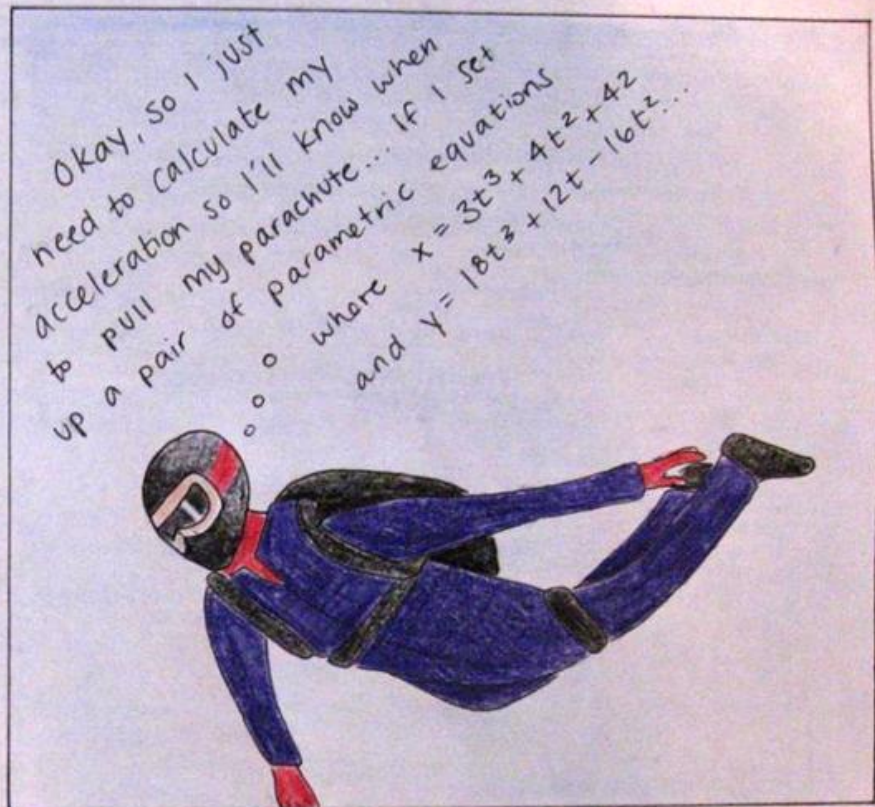 Okay, so I just
need to calculate my
acceleration so I'll know when
to pull my parachute... If I set
up a pair of parametric equations
where x = 3t³ + 4t² + 42
and y = 18t³ + 12t - 16t²...